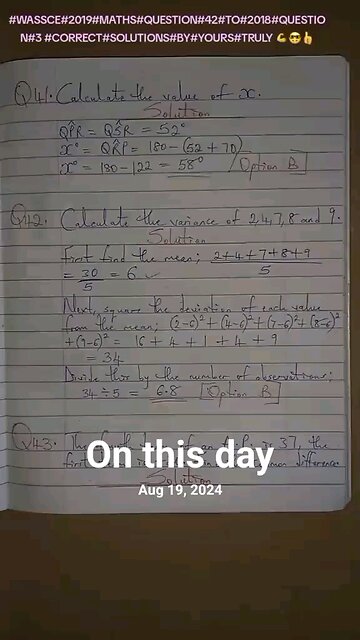 #WASSCE#2019#MATHS#QUESTION#42#TO#2018#QUESTIO
N#3 #CORRECT#SOLUTIONS#BY#YOURS#TRULY 💪😎👍
Q41. Calculate the value of x.
Solution
QP̂R = QŜR = 52°
x° = QR̂P = 180 – (52 + 70)
x° = 180 – 122 = 58° Option B
Q42. Calculate the variance of 2,4,7,8 and 9.
Solution
First find the mean; 2+4+7+8+9
5
= 30/5 = 6
Next, square the deviation of each value
from the mean; (2-6)² + (4-6)² + (7-6)² + (8-6)²
+ (9-6)² = 16 + 4 + 1 + 4 + 9
= 34
Divide this by the number of observations;
34 ÷ 5 = 6.8 Option B
Q43. The 37, the
first difference
Solution
On this day
Aug 19, 2024